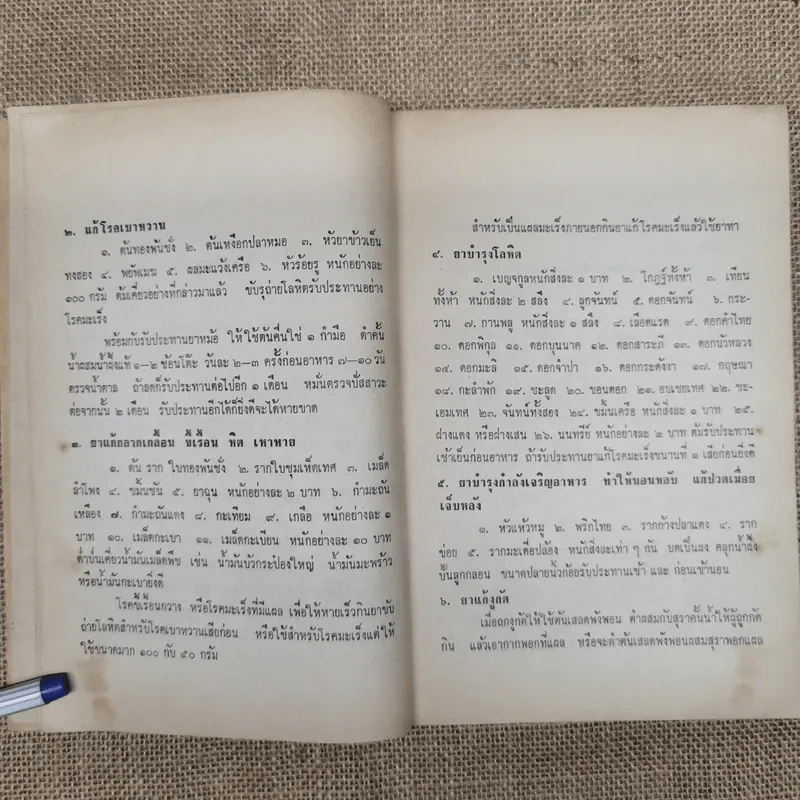 ๒. แก้โรคเบาหวาน
๑. ต้นทองพันชั่ง ๒. ต้นเหงือกปลาหมอ ๓. หัวยาข้าวเย็น
ทั้งสอง ๔. พยัพเมฆ ๕. ผลมะแว้งเครือ ๖. หัวร้อยรู หนักอย่างละ
๑๐๐ กรัม ต้มเคี่ยวอย่างที่กล่าวมาแล้ว ขับรุถ่ายโลหิตรับประทานอย่าง
โรคมะเร็ง
พร้อมกับรับประทานยาหม้อ ให้ใช้ต้นคื่นใช่ ๑ กำมือ ตำคั้น
น้ำผสมน้ำผึ้งแท้ ๑—๒ ช้อนโต๊ะ วันละ ๒—๓ ครั้งก่อนอาหาร ๗—๑๐ วัน
ตรวจน้ำตาล ถ้าลดก็รับประทานต่อไปอีก ๑ เดือน หมั่นตรวจปัสสาวะ
ต่อจากนั้น ๒ เดือน รับประทานอีกได้ก็ยิ่งดีจะได้หายขาด
๓. ยาแก้กลากเกลื้อน ขี้เรื้อน หิด เหาหาย
๑. ต้น ราก ใบทองพันชั่ง ๒. รากใบชุมเห็ดเทศ ๓. เมล็ด
ลำโพง ๔. ขมิ้นชัน ๕. ยาฉุน หนักอย่างละ ๒ บาท ๖. กำมะถัน
เหลือง ๗. กำมะถันแดง ๘. กะเทียม ๙. เกลือ หนักอย่างละ ๑
บาท ๑๐. เมล็ดกะเบา ๑๑. เมล็ดกะเบียน หนักอย่างละ ๑๐ บาท
ตำป่นเคี่ยวน้ำมันเมล็ดพืช เช่น น้ำมันบัวกระป๋องใหญ่ น้ำมันมะพร้าว
หรือน้ำมันกะเบายิ่งดี
โรคขี้เรื้อนกวาง หรือโรคมะเร็งที่มีแผล เพื่อให้หายเร็วกินยาขับ
ถ่ายโลหิตสำหรับโรคเบาหวานเสียก่อน หรือใช้สำหรับโรคมะเร็งแต่ให้
ใช้ขนาดมาก ๑๐๐ กับ ๕๐ กรัม
สำหรับเป็นแผลมะเร็งภายนอกกินยาแก้โรคมะเร็งแล้วใช้ยาทา
๔. ยาบำรุงโลหิต
๑. เบญจกูลหนักสิ่งละ ๑ บาท ๒. โกฏฐ์ทั้งห้า ๓. เทียน
ทั้งห้า หนักสิ่งละ ๒ สลึง ๔. ลูกจันทน์ ๕. ดอกจันทน์ ๖. กระ-
วาน ๗. กานพลู หนักสิ่งละ ๑ สลึง ๘. เลือดแรด ๙. ดอกคำไทย
๑๐. ดอกพิกุล ๑๑. ดอกบุนนาค ๑๒. ดอกสาระภี ๑๓. ดอกบัวหลวง
๑๔. ดอกมะลิ ๑๕. ดอกจำปา ๑๖. ดอกกระดังงา ๑๗. กฤษณา
๑๘. กะลำพัก ๑๙. ชะลูด ๒๐. ขอนดอก ๒๑. อบเชยเทศ ๒๒. ชะ-
เอมเทศ ๒๓. จันทน์ทั้งสอง ๒๔. ขมิ้นเครือ หนักสิ่งละ ๑ บาท ๒๕.
ฝางแดง หรือฝางเสน ๒๖. นนทรีย์ หนักอย่างละ ๒ บาท ต้มรับประทาน
เช้าเย็นก่อนอาหาร ถ้ารับประทานยาแก้โรคมะเร็งขนานที่ ๑ เสียก่อนยิ่งดี
๕. ยาบำรุงกำลังเจริญอาหาร ทำให้นอนหลับ แก้ปวดเมื่อย
เจ็บหลัง
๑. หัวแห้วหมู ๒. พริกไทย ๓. รากก้างปลาแดง ๔. ราก
ข่อย ๕. รากมะเดื่อปล้อง หนักสิ่งละเท่า ๆ กัน บดเป็นผง คลุกน้ำผึ้ง
ปั้นลูกกลอน ขนาดปลายนิ้วก้อยรับประทานเช้า และ ก่อนเข้านอน
๖. ยาแก้งูกัด
เมื่อถูกงูกัดให้ใช้ต้นเสลดพังพอน ตำผสมกับสุราคั้นน้ำให้ผู้ถูกกัด
กิน แล้วเอากากพอกที่แผล หรือจะตำต้นเสลดพังพอนผสมสุราพอกแผล